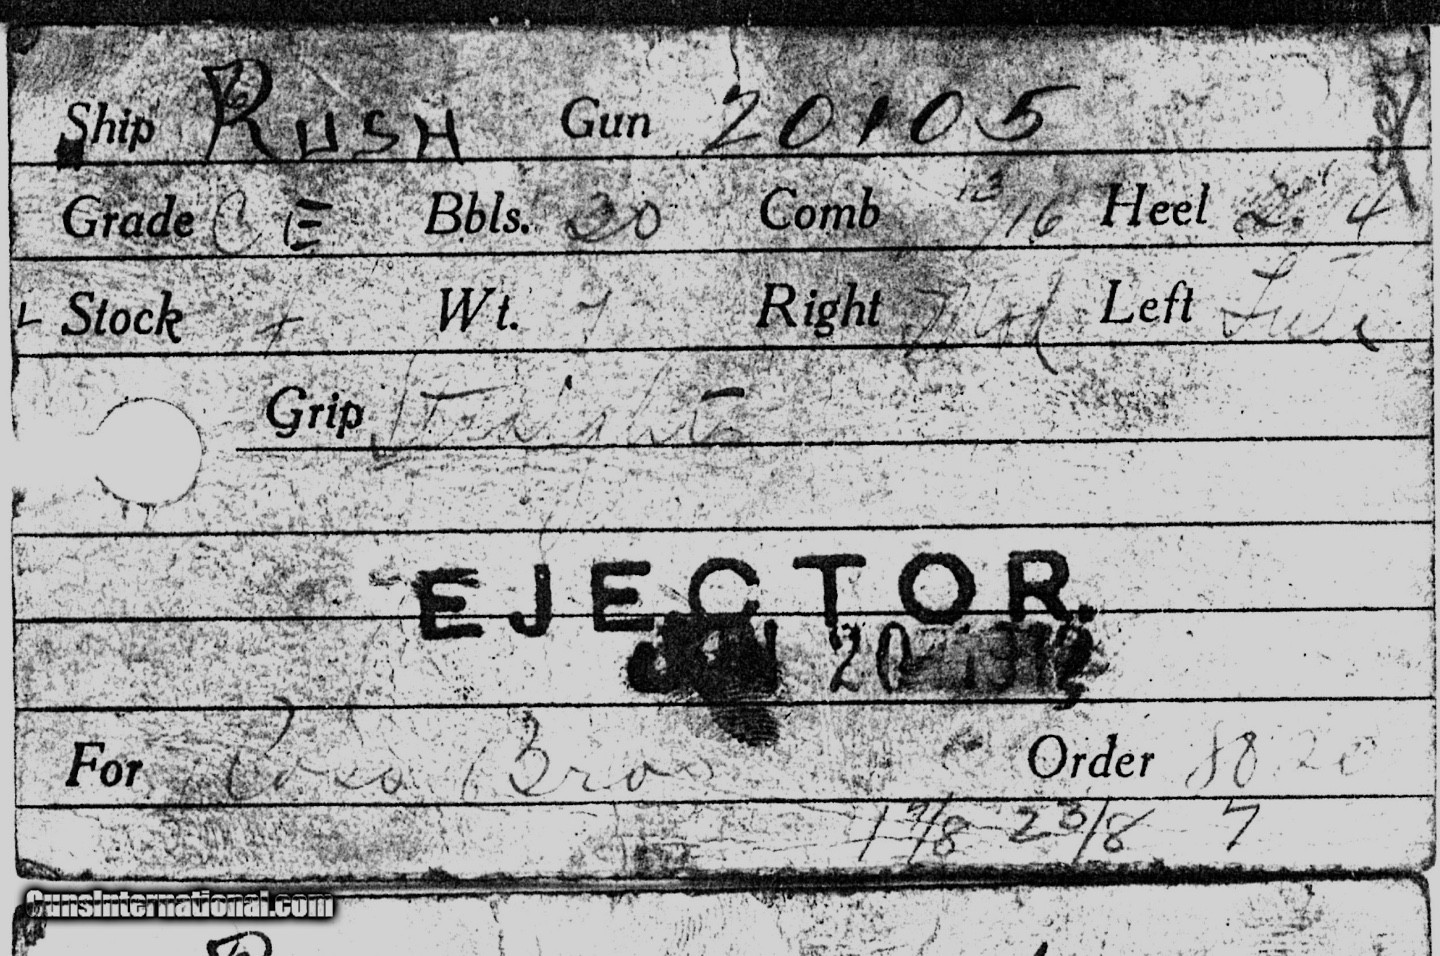 Ship RUSH Gun 20105
Grade C E Bbls. 30 Comb 13/16 Heel 2. 1/4
L Stock + Wt. 7 Right Mod Left Full
Grip Straight
EJECTOR.
20 1912
For Bros Order 8020
1 7/8 2 3/8 7
GunsInternational.com